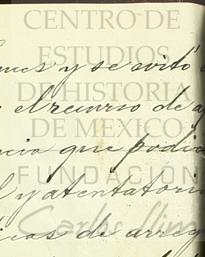 CENTRO DE
ESTUDIOS
DE HISTORIA
DE MEXICO
FUNDACION
Carlos Slim
y se evitó
el recurso de a
ncia que podia
l y atentatori
icas de arreg